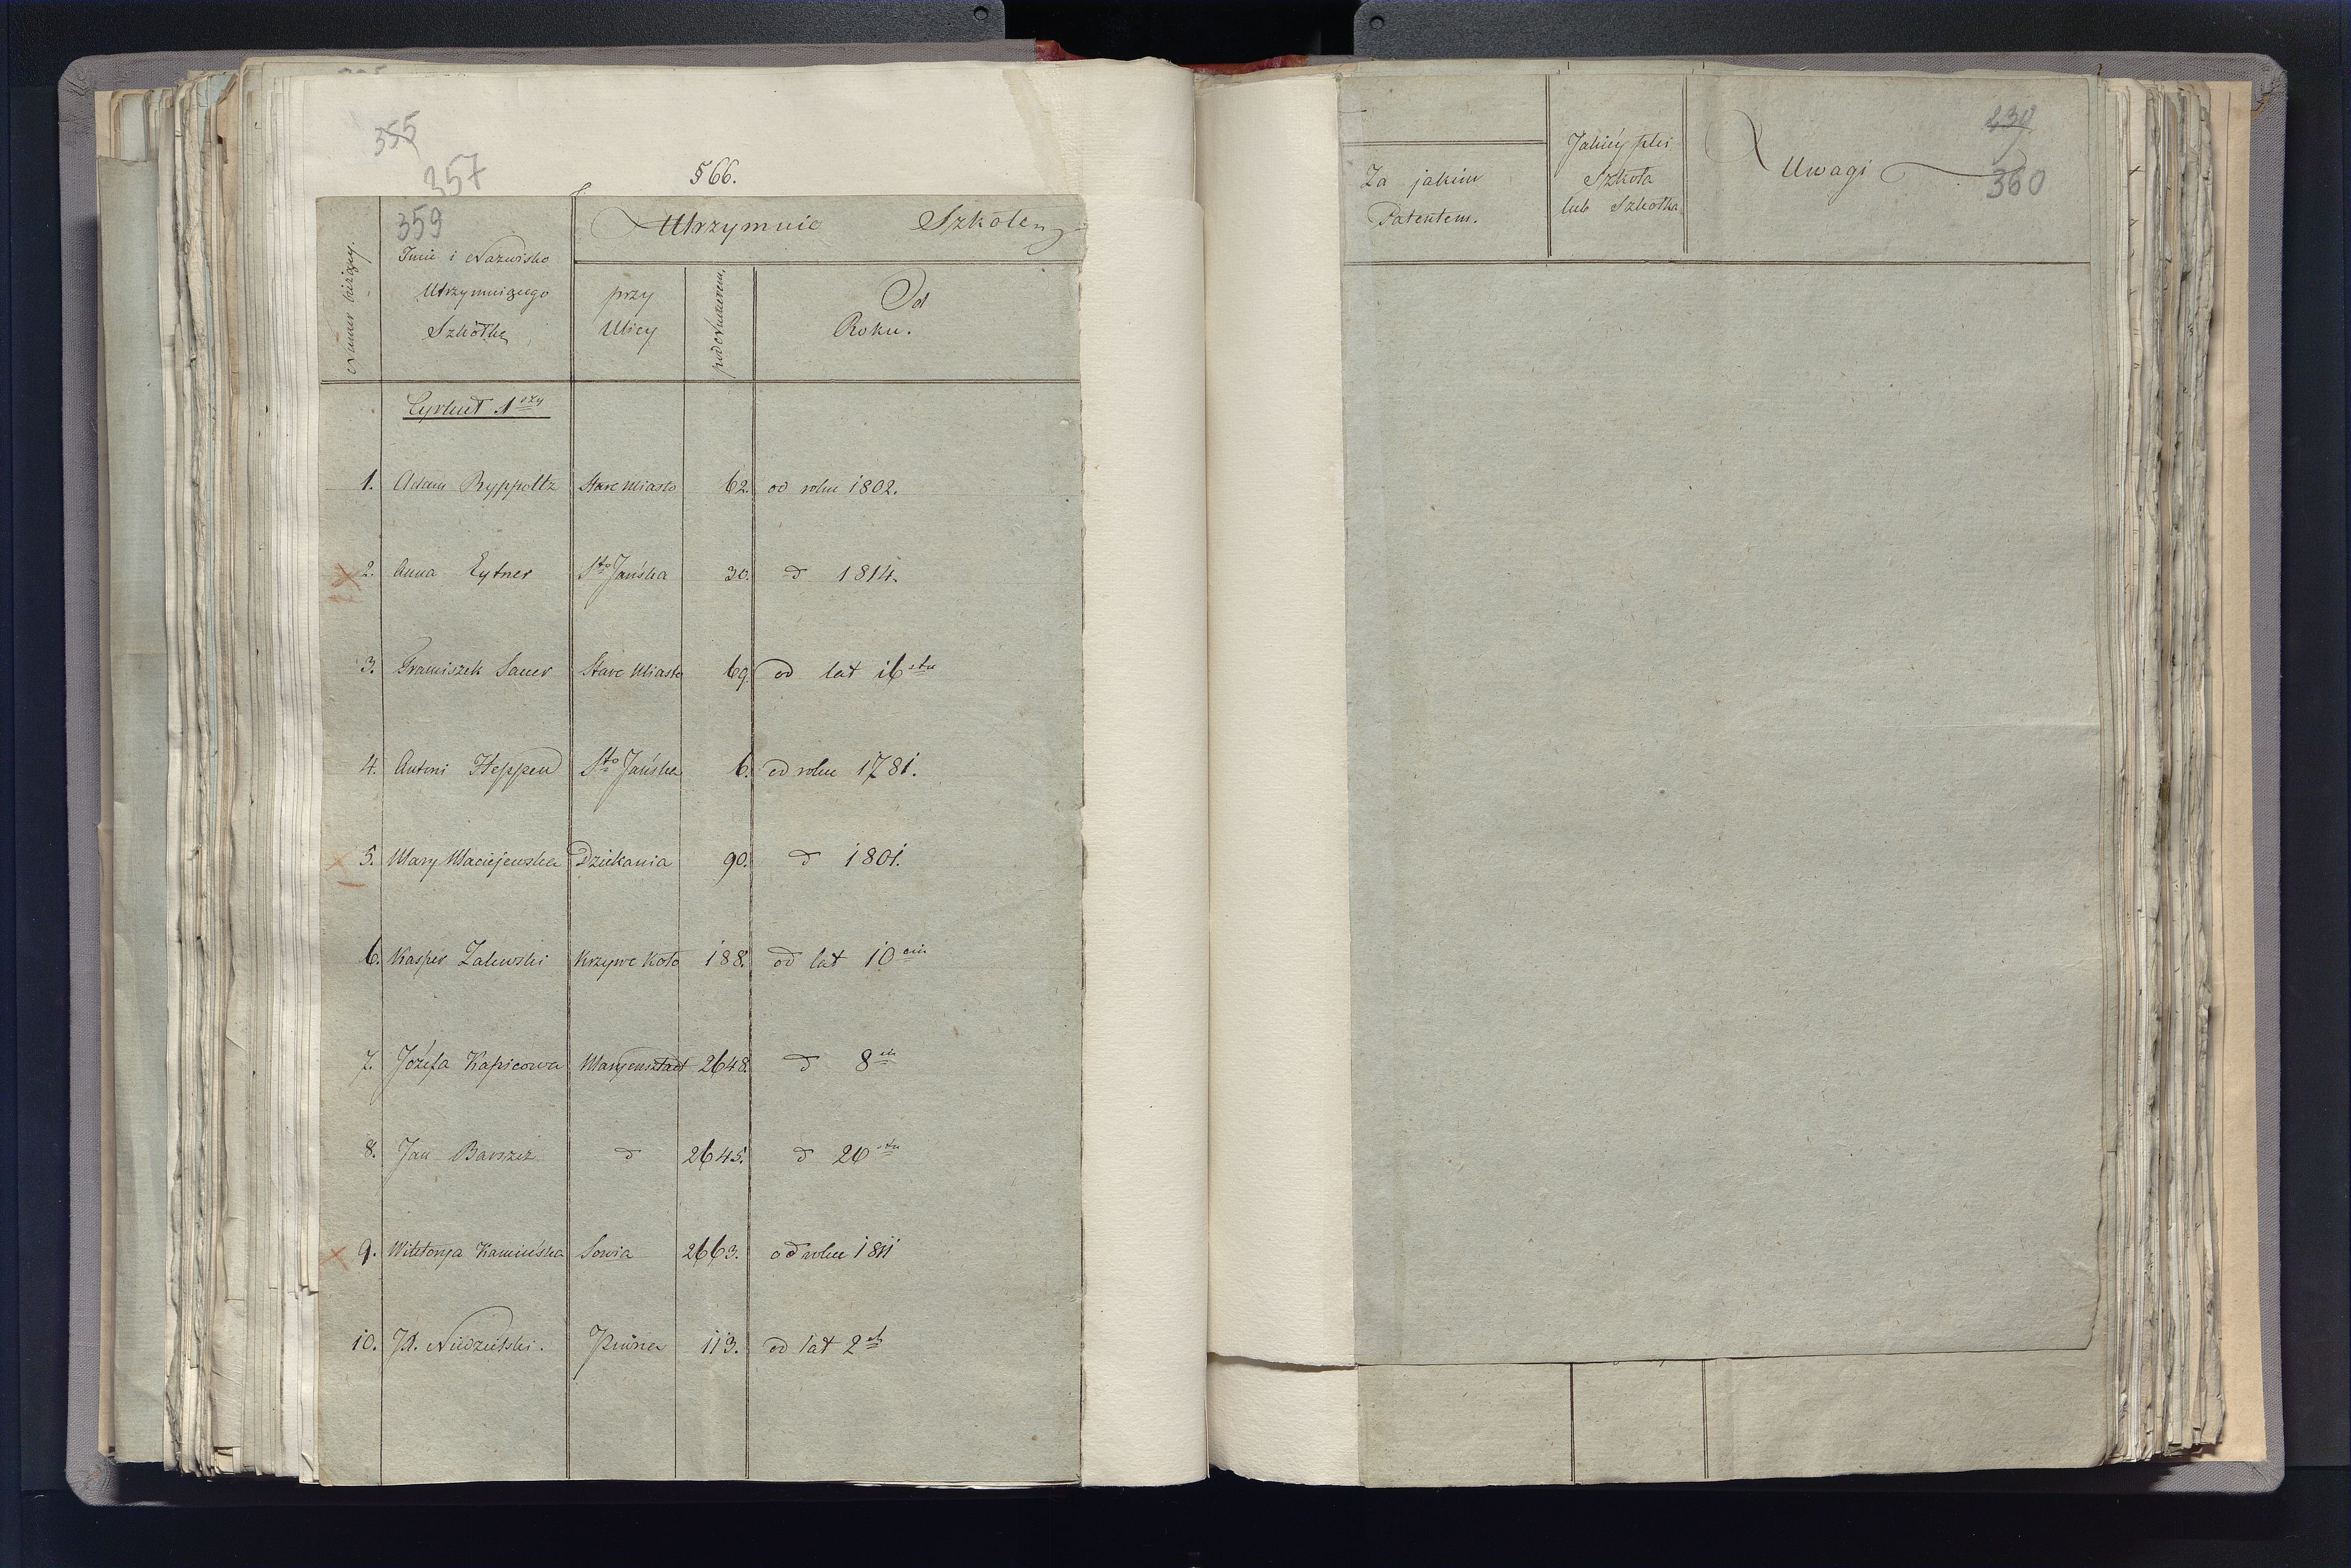 355
357
§ 66.
359
Numer bieżący.
Imie i Nazwisko
Utrzymuiącego
Szkółkę
Utrzymuie Szkołę
przy
Ulicy
pod Numerem.
Od
Roku.
Za jakim
Patentem.
Jakiéy płci
Szkoła
lub Szkółka
Uwagi
360
Cyrkuł 1szy
1. Adam Ryppoltz Stare Miasto 62. od roku 1802.
2. Anna Eytner Sto Jańska 30. d 1814.
3. Franciszek Sauer Stare Miasto 69. od lat 16stu
4. Antoni Heppen Sto Jańska 6. od roku 1781.
5. Mary Maciejewska Dziekania 90. d 1801.
6. Kasper Zalewski Krzywe Koło 188. od lat 10ciu
7. Józefa Kapicowa Maryensztadt 2648. d 8miu
8. Jan Barszcz d 2645. d 20stu
9. Wiktorya Kamińska Sowia 2663. od roku 1811
10. Jd. Niedzielski. Piwna 113. od lat 2ch